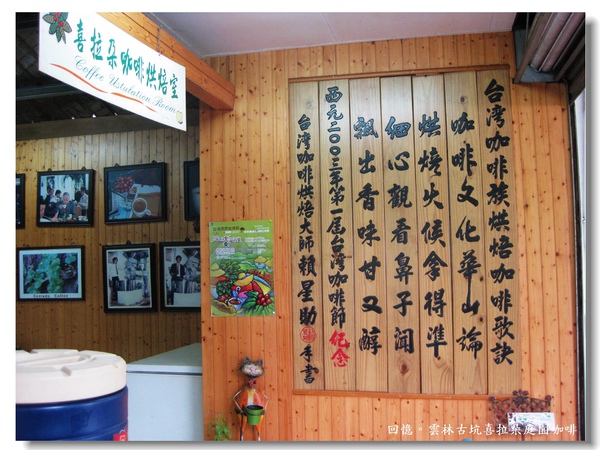 喜拉朵咖啡烘焙室
Coffee Ustulation Room
台灣咖啡族烘焙咖啡歌訣
咖啡文化華山論
烘燒火候拿得準
細心觀看鼻子聞
飄出香味甘又醇
西元二00三年第一屆台灣咖啡節紀念
台灣咖啡烘焙大師賴星助 手書
回憶。雲林古坑喜拉朵庭園咖啡